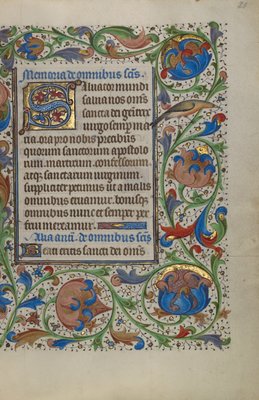 Memoria de omnibus scis.
Saluator mundi
salua nos oms
sancta dei genitrix
uirgo semp ma
ria. ora pro nobis precibus
quorum sanctorum apostolo
rum. martirum. confessorum.
atq; sanctarum uirginum.
suppliciter petimus ut a malis
omnibus eruamur. bonisq;
omnibus nunc et semper per
frui mereamur.
Alia anti. de omnibus scis
Beati estis sancti dei oms